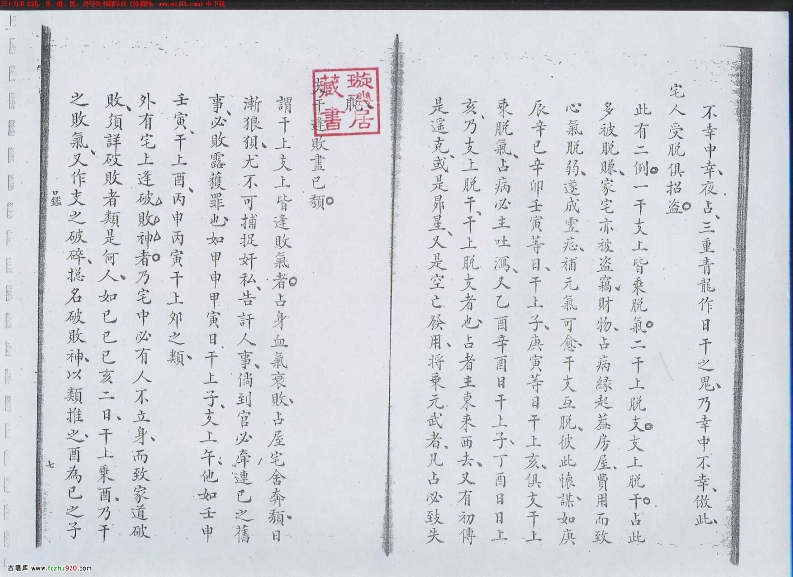 不幸中幸夜占三重青龍作日干之鬼乃幸中不幸倣此
宅人受脫俱招盜
此有二例一干支上皆乘脫氣二干上脫支支上脫干占此
多被脫賺家宅亦被盜竊財物占病緣起蓋房屋費用而致
心氣脫弱遂成虛症補元氣可愈干支互脫彼此懷謀如庚
辰辛巳辛卯壬寅等日干上子庚寅等日干上亥俱支干上
乘脫氣占病必主吐瀉又乙酉辛酉日干上子丁酉日日上
亥乃支上脫干干上脫支者也占者主東來西去又有初傳
是遥克或是昴星又是空亡發用將乘元武者凡占必致失
脫
干逢敗盡已頹
謂干上支上皆逢敗氣者占身血氣衰敗占屋宅舍奔頹日
漸狼狽尤不可捕捉奸私告訐人事倘到官必牽連已之舊
事必敗露獲罪也如甲申甲寅日干上子支上午他如壬申
壬寅干上酉丙申丙寅干上卯之類
外有宅上逢破敗神者乃宅中必有人不立身而致家道破
敗須詳破敗者類是何人如己巳己亥二日干上乘酉乃干
之敗氣又作支之破碎搃名破敗神以類推之酉為已之子
口鑑
七
璇璣居藏書
古易库 www.fczhu920.com